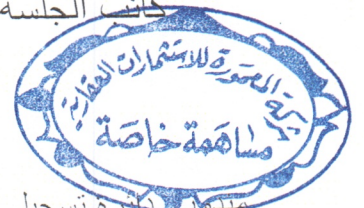 كاتب الجلسة
شركة المعمورة للاستثمارات العقارية
مساهمة خاصة
تسجيل